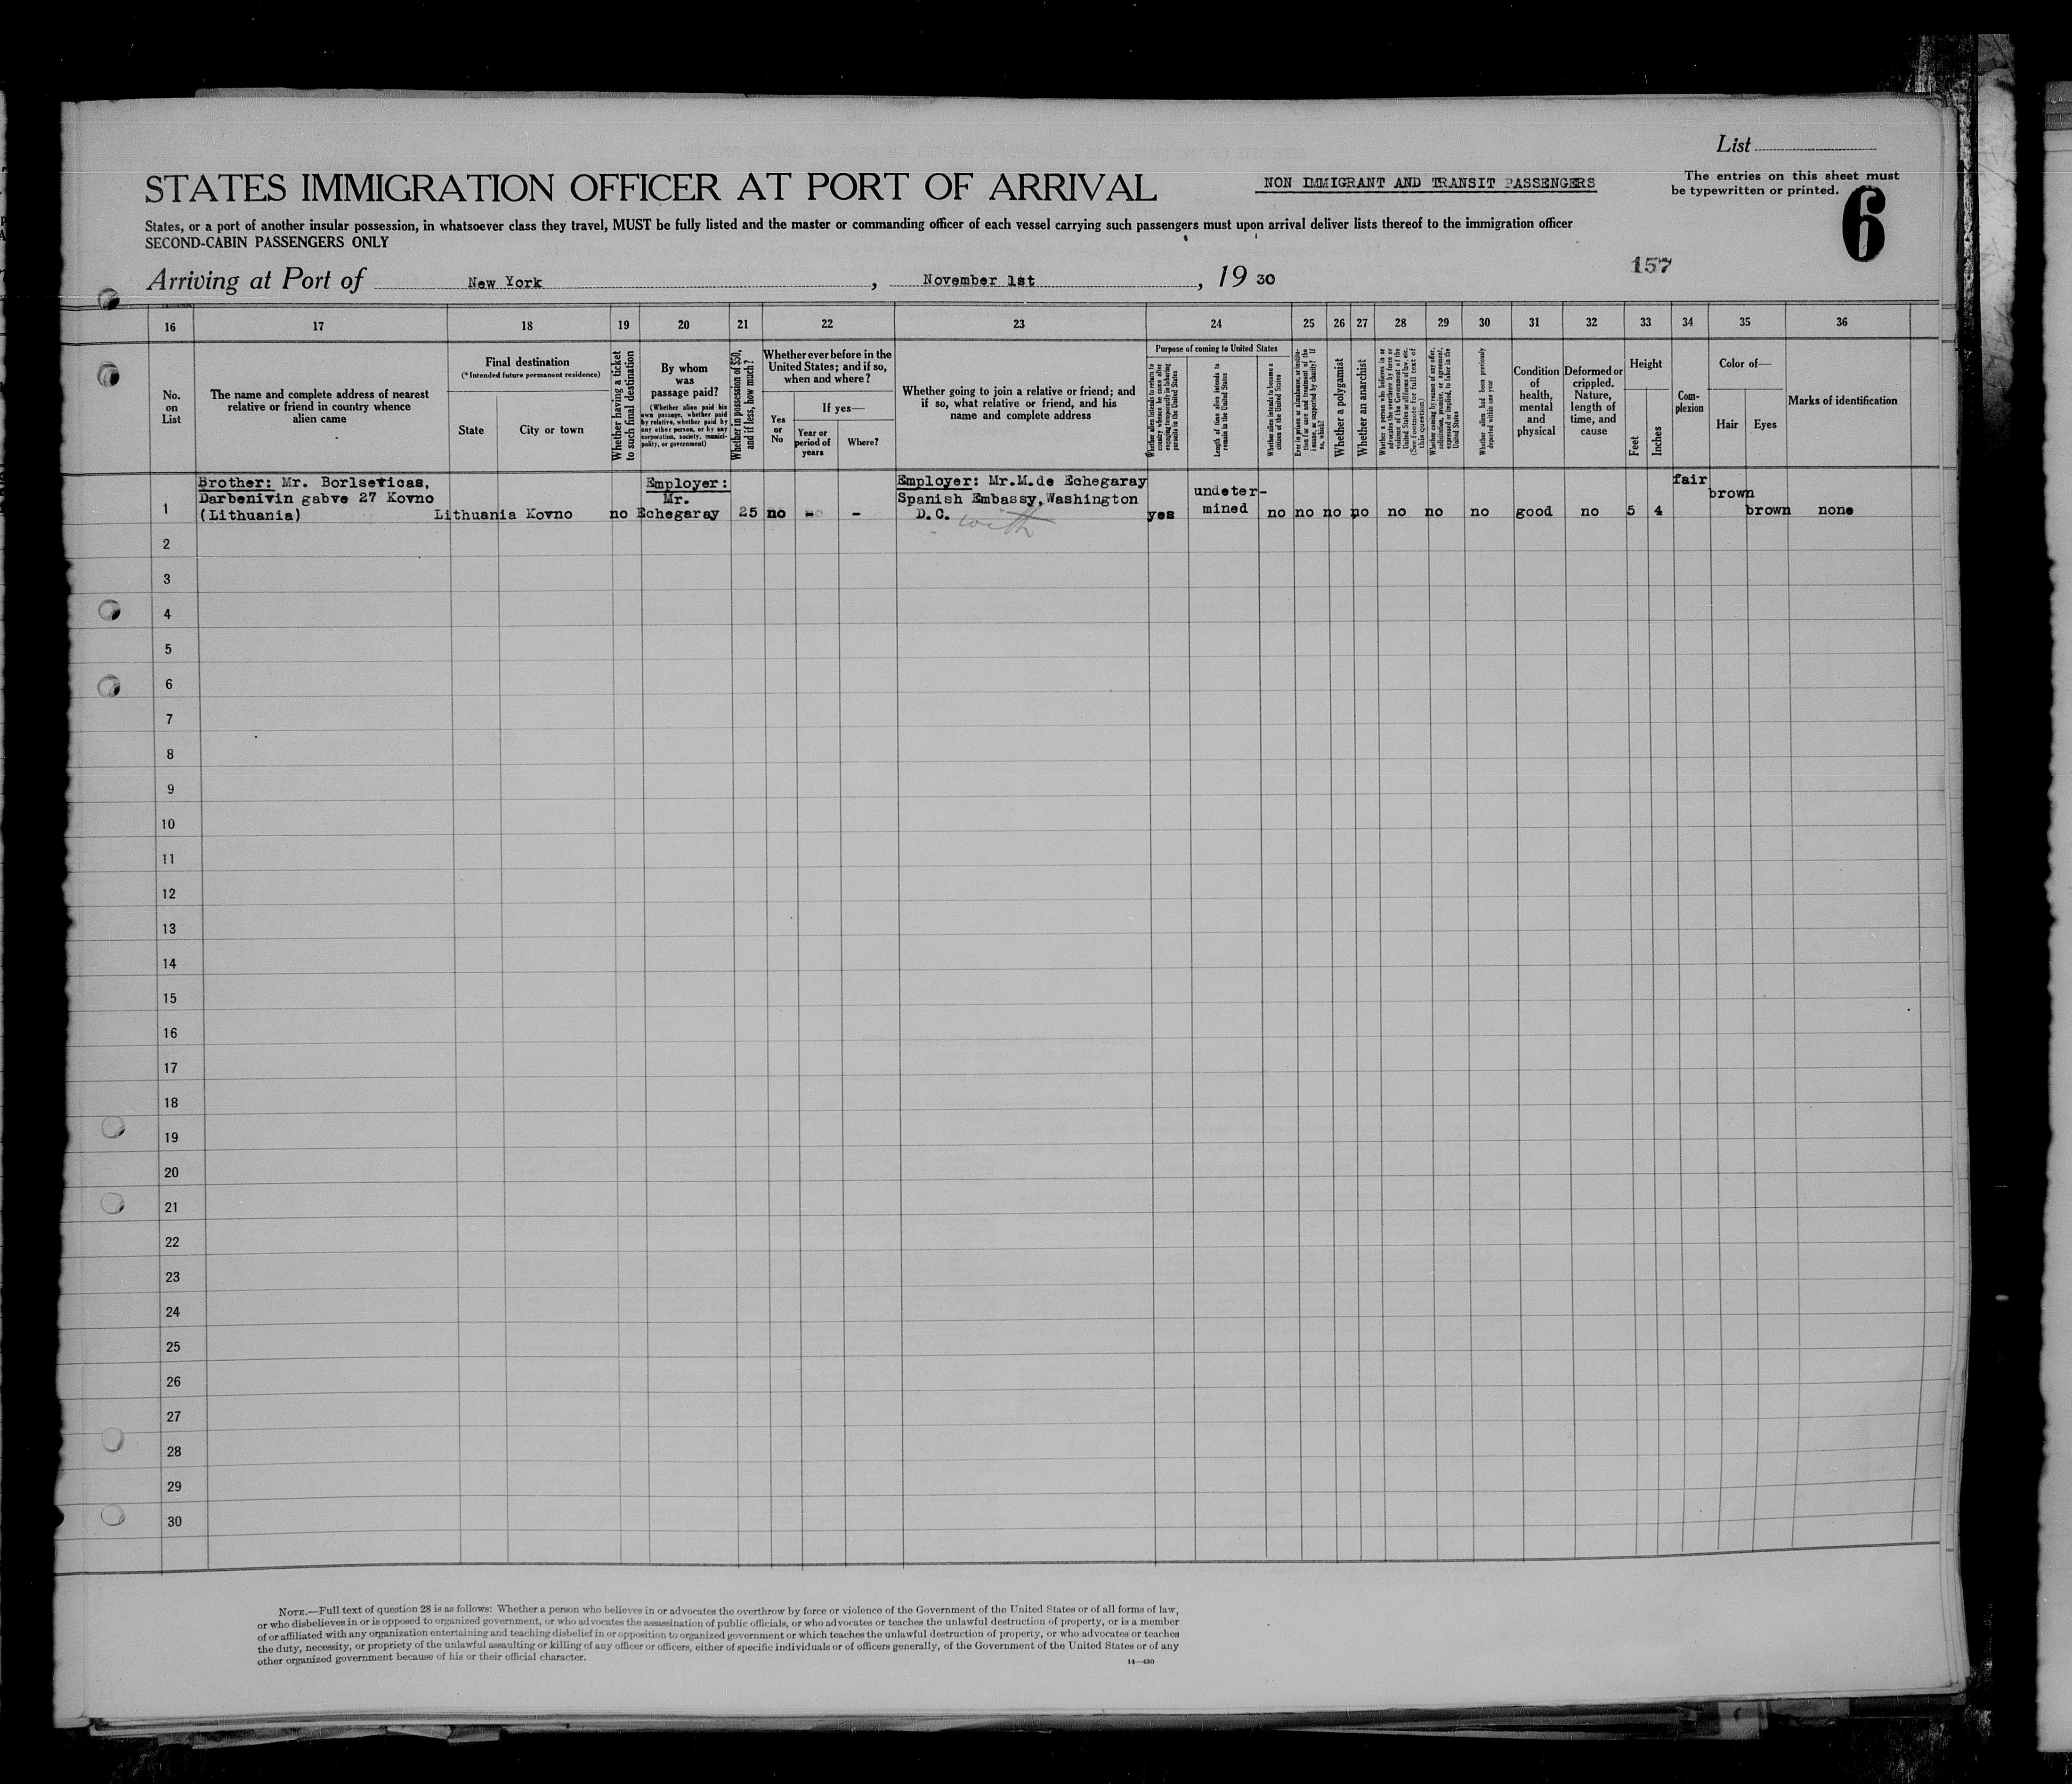 List
STATES IMMIGRATION OFFICER AT PORT OF ARRIVAL
NON IMMIGRANT AND TRANSIT PASSENGERS
The entries on this sheet must
be typewritten or printed.
6
States, or a port of another insular possession, in whatsoever class they travel, MUST be fully listed and the master or commanding officer of each vessel carrying such passengers must upon arrival deliver lists thereof to the immigration officer
SECOND-CABIN PASSENGERS ONLY
157
Arriving at Port of New York, November 1st, 19 30
16 17 18 19 20 21 22 23 24 25 26 27 28 29 30 31 32 33 34 35 36
No.
on
List
The name and complete address of nearest
relative or friend in country whence
alien came
Final destination
(*Intended future permanent residence)
State
City or town
Whether having a ticket
to such final destination
By whom
was
passage paid?
(Whether alien paid his
own passage, whether paid
by relative, whether paid by
any other person, or by any
corporation, society, munici-
pality, or government)
Whether in possession of $50,
and if less, how much?
Whether ever before in the
United States; and if so,
when and where?
Yes
or
No
If yes—
Year or
period of
years
Where?
Whether going to join a relative or friend; and
if so, what relative or friend, and his
name and complete address
Purpose of coming to United States
Whether alien intends to return to
country whence he came after
engaging temporarily in laboring
pursuits in the United States
Length of time alien intends to
remain in the United States
Whether alien intends to become a
citizen of the United States
Ever in prison or almshouse, or institu-
tion for care and treatment of the
insane, or supported by charity? If
so, which?
Whether a polygamist
Whether an anarchist
Whether a person who believes in or
advocates the overthrow by force or
violence of the Government of the
United States or all forms of law, etc.
(See footnote for full text of
this question)
Whether coming by reason of any offer,
solicitation, promise, or agreement,
expressed or implied, to labor in the
United States
Whether alien had been previously
deported within one year
Condition
of
health,
mental
and
physical
Deformed or
crippled.
Nature,
length of
time, and
cause
Height
Feet
Inches
Com-
plexion
Color of—
Hair
Eyes
Marks of identification
1
Brother: Mr. Borlseticas,
Darbenivin gabve 27 Kovno
(Lithuania)
Lithuania Kovno
no
Employer:
Mr.
Echegaray
25
no
-
Employer: Mr.M.de Echegaray
Spanish Embassy,Washington
D.C. with
yes
undeter-
mined
no no no no no no no good no 5 4
fair
brown
brown
none
2
3
4
5
6
7
8
9
10
11
12
13
14
15
16
17
18
19
20
21
22
23
24
25
26
27
28
29
30
NOTE.—Full text of question 28 is as follows: Whether a person who believes in or advocates the overthrow by force or violence of the Government of the United States or of all forms of law,
or who disbelieves in or is opposed to organized government, or who advocates the assassination of public officials, or who advocates or teaches the unlawful destruction of property, or is a member
of or affiliated with any organization entertaining and teaching disbelief in or opposition to organized government or which teaches the unlawful destruction of property, or who advocates or teaches
the duty, necessity, or propriety of the unlawful assaulting or killing of any officer or officers, either of specific individuals or of officers generally, of the Government of the United States or of any
other organized government because of his or their official character.
14—430